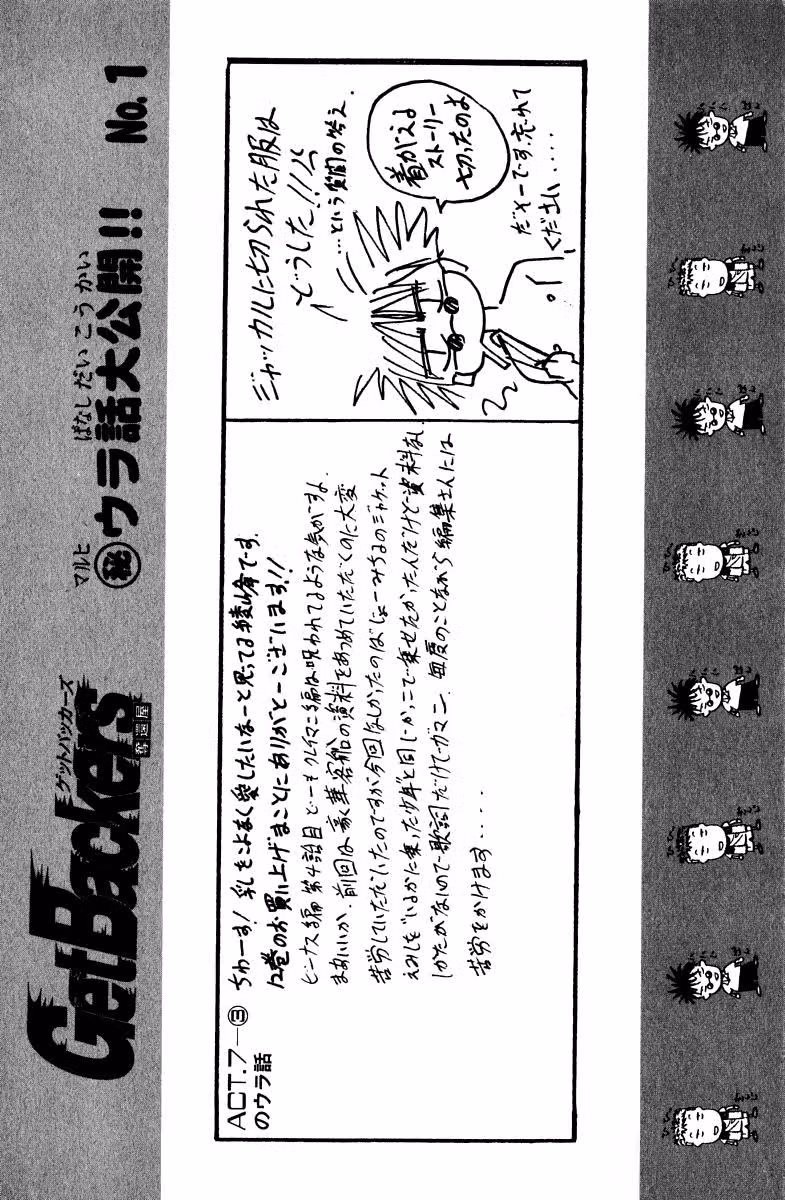 ゲットバッカーズ
GetBackers
奪還屋
マルヒ
㊙ウラ話大公開!! No.1
ばなしだいこうかい
ACT.7―③
のウラ話
ちわーす! 乳をこよなく愛したいなーと思ってる綾峰です。
12巻のお買い上げまことにありがとーございます!!
ビーナス編第4話目 どーも クレイマン編は呪われてるような気がすょ。
まぁいいか、前回は豪華客船の資料をあつめていただくのに大変
苦労していただいたのですが今回なしかったのは"じょーみちるのジャケット
えみしを"いるかに乗った少年"と同じかっこで乗せたかったんだけど資料なし。
しかたがないので歌詞だけでガマン、毎度のことながら編集さんには
苦労をかけます・・・・
ジャッカルに切られた服は
どうした!!
…という質問の答え。
着がえる
ストーリー
切ったのよ
だそーです、忘れて
ください.....